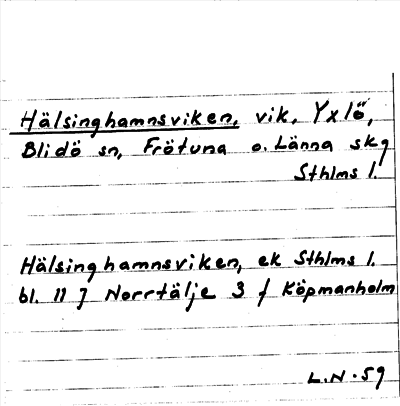 Hälsinghamnsviken, vik, Yxlö,
Blidö sn, Frötuna o. Länna skg
Sthlms l.
Hälsinghamnsviken, ek Sthlms l.
bl. 11 J Norrtälje 3 f Köpmanholm
L.N. 59